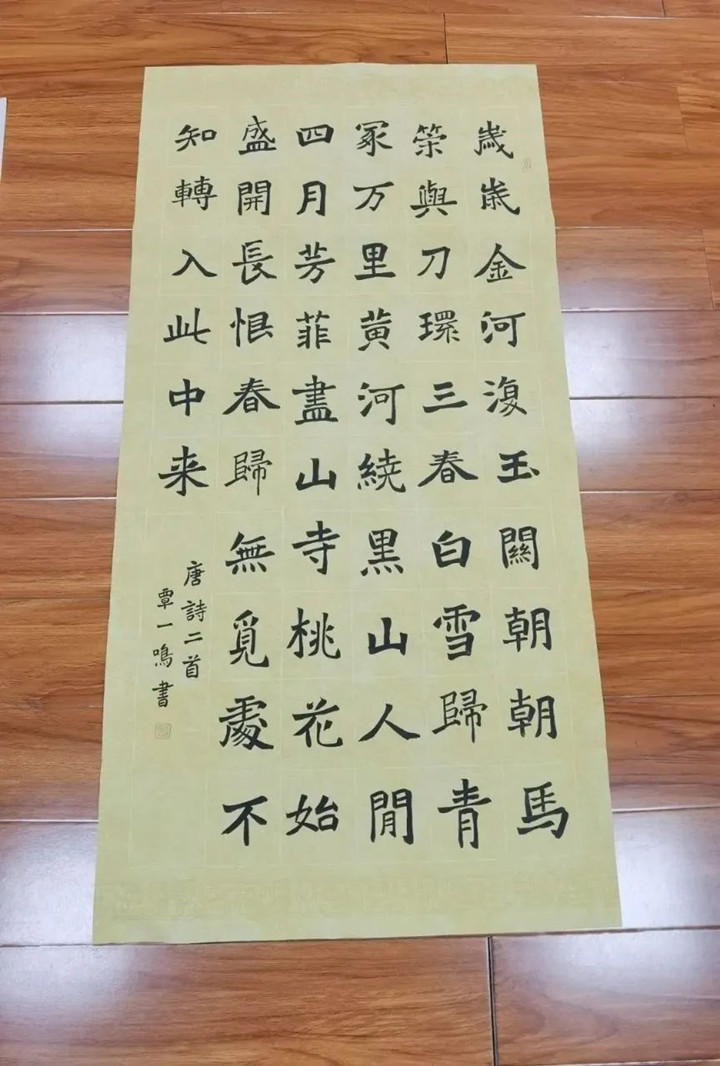 歲歲金河復玉關朝朝馬
策與刀環三春白雪歸青
冢万里黄河繞黑山人閒
四月芳菲盡山寺桃花始
盛開長恨春歸無覓處不
知轉入此中来
唐詩二首
覃一鳴書